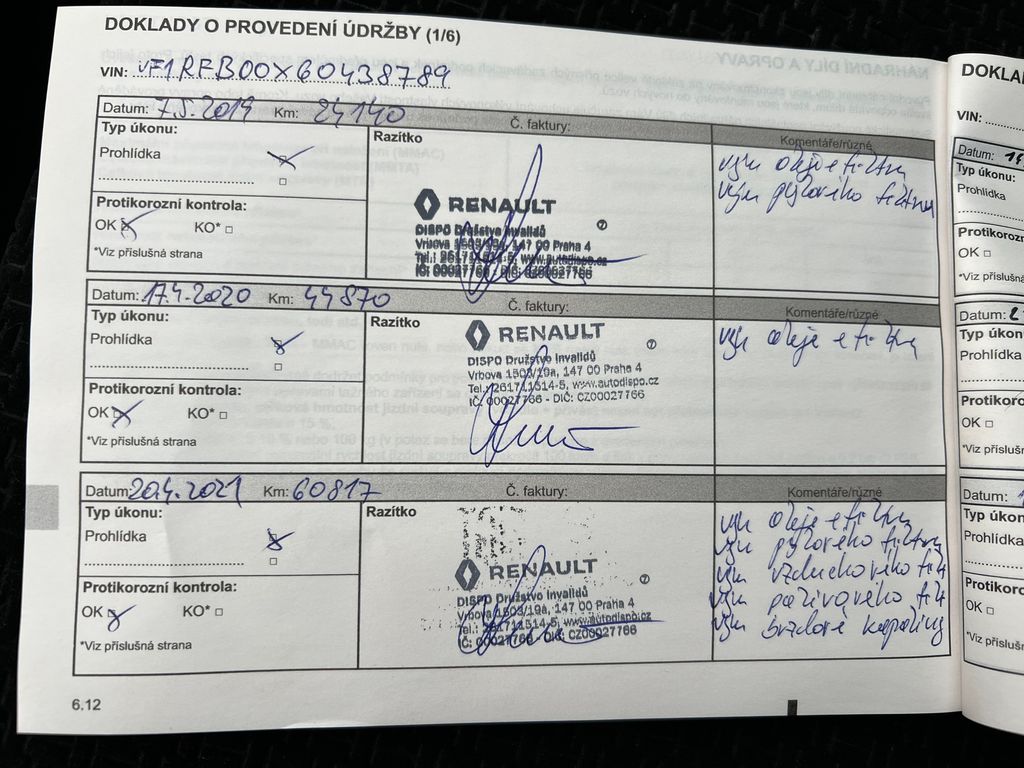 DOKLADY O PROVEDENÍ ÚDRŽBY (1/6)
VIN: VF1RFB00X60438789
Datum: 7.5.2019 Km: 24140 Č. faktury: Komentáře/různé
Typ úkonu:
Razítko
Prohlídka
Protikorozní kontrola:
OK KO*
*Viz příslušná strana
RENAULT
DISPO Družstvo Invalidů
Vrbova 1503/19a, 147 00 Praha 4
Tel.: 261711514-5, www.autodispo.cz
IČ: 00027766 - DIČ: CZ00027766
vým oleje e filtru
vým pylového filtru
Datum: 17.4.2020 Km: 44870 Č. faktury: Komentáře/různé
Typ úkonu:
Razítko
Prohlídka
Protikorozní kontrola:
OK KO*
*Viz příslušná strana
RENAULT
DISPO Družstvo Invalidů
Vrbova 1503/19a, 147 00 Praha 4
Tel.: 261711514-5, www.autodispo.cz
IČ: 00027766 - DIČ: CZ00027766
vým oleje e filtru
Datum: 20.4.2021 Km: 60817 Č. faktury: Komentáře/různé
Typ úkonu:
Razítko
Prohlídka
Protikorozní kontrola:
OK KO*
*Viz příslušná strana
RENAULT
DISPO Družstvo Invalidů
Vrbova 1503/19a, 147 00 Praha 4
Tel.: 261711514-5, www.autodispo.cz
IČ: 00027766 - DIČ: CZ00027766
vým oleje e filtru
vým pylového filtru
vým vzduchového filt
vým palivového filt
vým brzdové kapaliny
6.12
DOKLA
VIN:
Datum:
Typ úkonu:
Prohlídka
Protikorozn
OK
*Viz příslušná
Datum:
Typ úkon
Prohlídka
Protikoro
OK
*Viz příslušn
Datum:
Typ úkon
Prohlídka
Protikoro
OK
*Viz příslušn